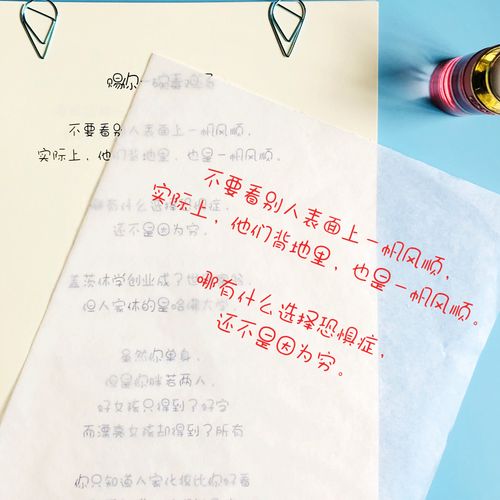 赐你一碗毒
不要看别人表面上一帆风顺，
实际上，他们背地里，也是一帆风顺。
哪有什么选择恐惧症，
还不是因为穷。
盖茨休学创业成了世
但人家休的是哈佛大学
虽然你单身，
但是你胖若两人。
好女孩只得到了好字
而漂亮女孩却得到了所有
你只知道人家化妆比你好看
不要看别人表面上一帆风顺，
实际上，他们背地里，也是一帆风顺。
哪有什么选择恐惧症，
还不是因为穷。